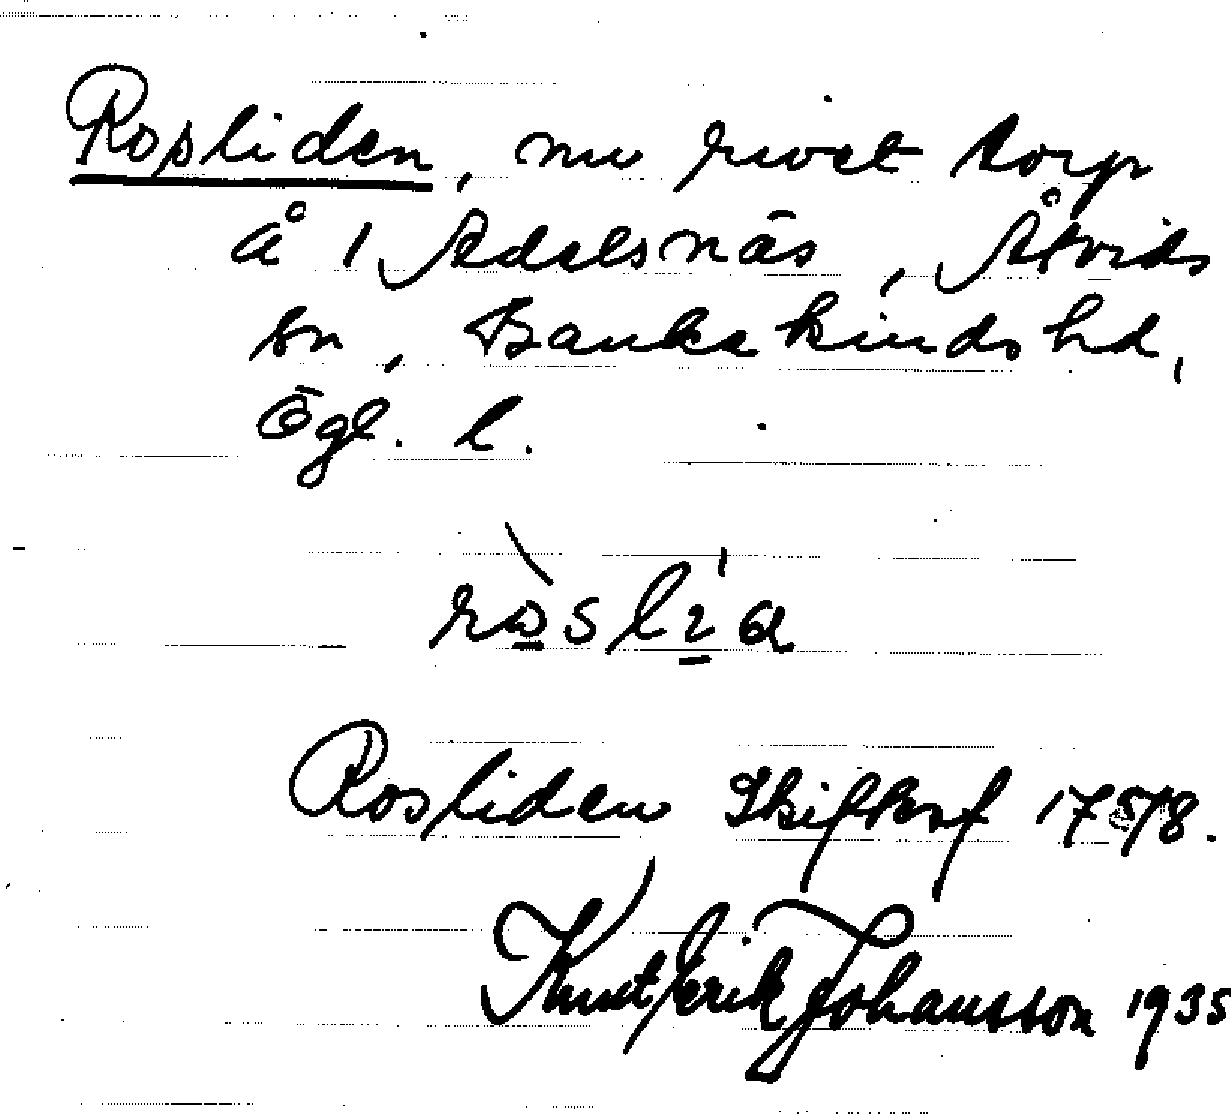 Rosliden, nu rivet torp
å 1 Adelsnäs, Åtvids
sn, Bankekinds hd,
Ögl. l.
ròslí̱a
Rosliden Skiftesf 1758.
Knut Erik Johansson 1935